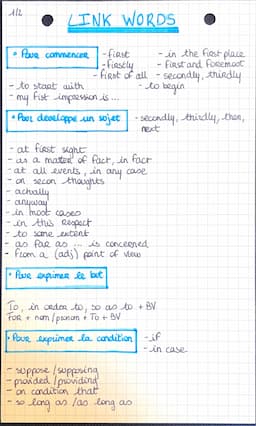 1/2
LINK WORDS
• Pour commencer
- first - in the first place
- firstly - first and foremost
- first of all - secondly, thirdly
- to start with - to begin
- my fist impression is ...
• Pour developpe un sujet - secondly, thirdly, then, next
- at first sight
- as a matter of fact, in fact
- at all events, in any case
- on secon thoughts
- actually
- anyway
- in most cases
- in this respect
- to some extent
- as far as ... is concerned
- from a (adj) point of view
• Pour exprimer le but
To, in order to, so as to + BV
For + nom/pronom + To + BV
• Pour exprimer la condition - if
- in case
- suppose / supposing
- provided / providing
- on condition that
- so long as / as long as